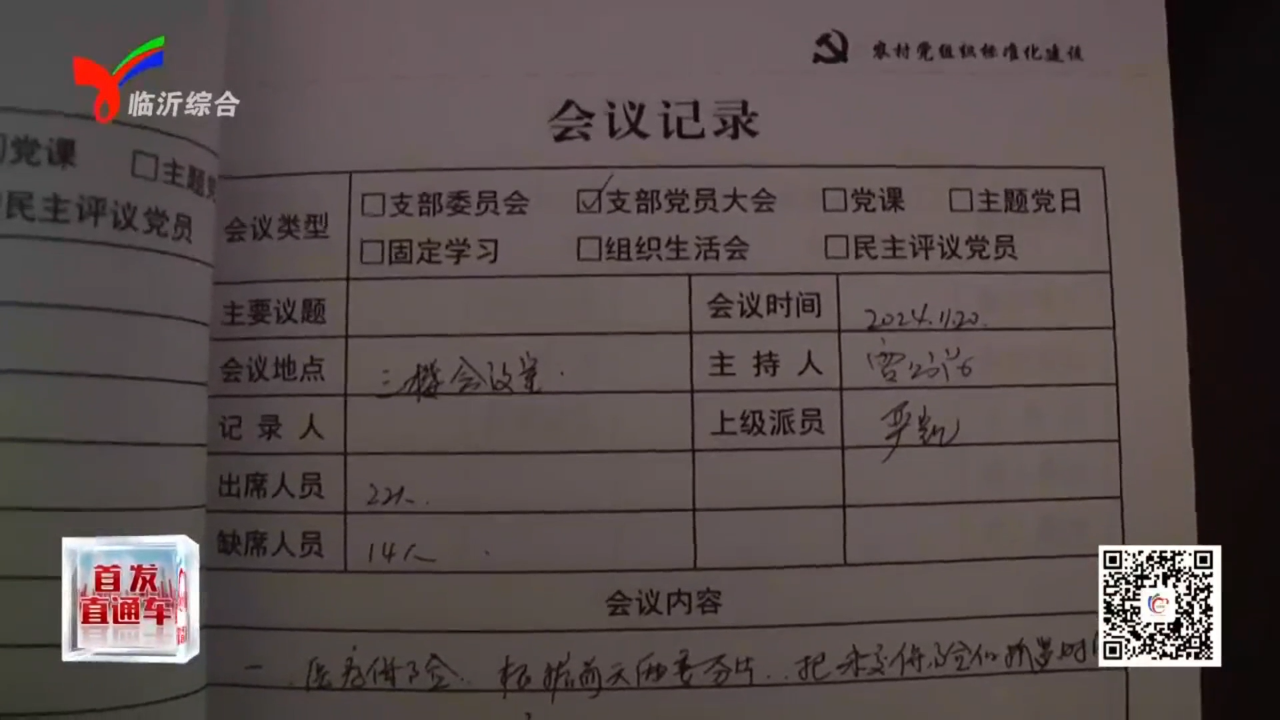 临沂综合
农村党组织标准化建设
会议记录
党课 □主题党
民主评议党员
会议类型 □支部委员会 ☑支部党员大会 □党课 □主题党日
□固定学习 □组织生活会 □民主评议党员
主要议题 会议时间 2024.11.20.
会议地点 三楼会议室. 主持人
记录人 上级派员 严凯
出席人员 22人.
缺席人员 14人
会议内容
首发
直通车
一 医疗保险 根据前天两委分片 把未交